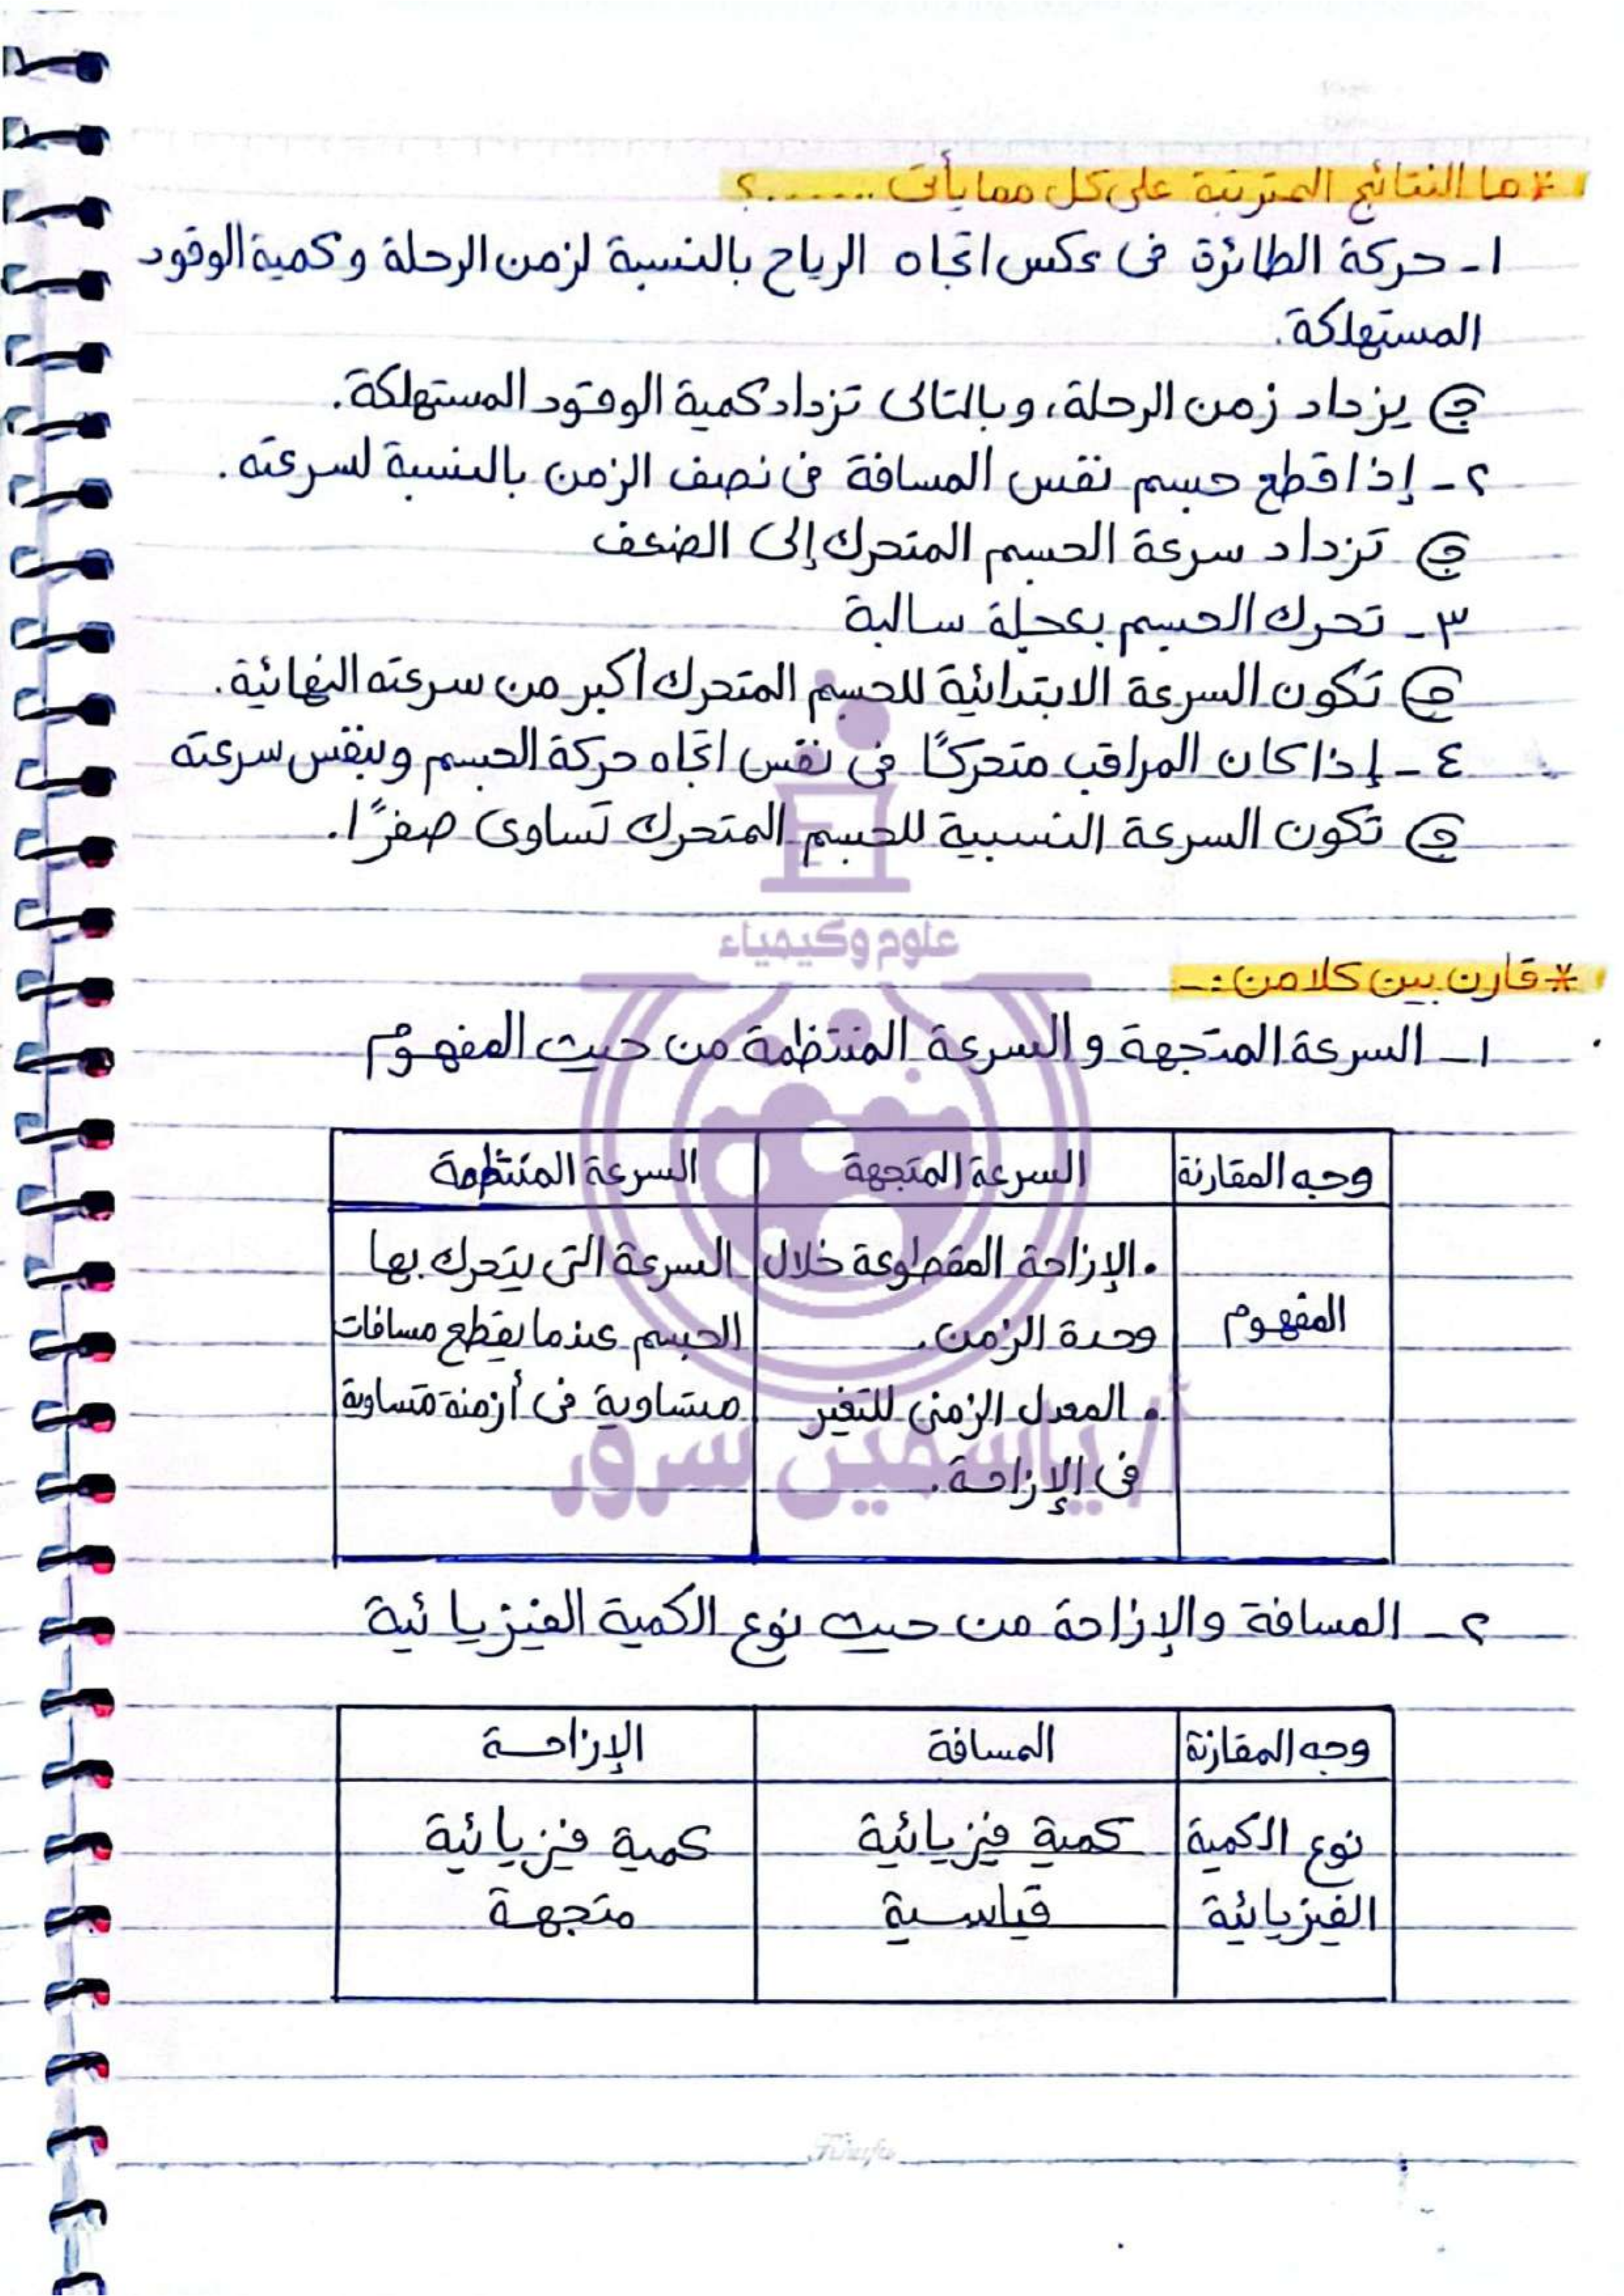 * ما النتائج المترتبة على كل مما يأتى .......؟
١- حركة الطائرة فى عكس اتجاه الرياح بالنسبة لزمن الرحلة وكمية الوقود
المستهلكة.
ج يزداد زمن الرحلة، وبالتالى تزداد كمية الوقود المستهلكة.
٢- إذا قطع جسم نفس المسافة فى نصف الزمن بالنسبة لسرعته.
ج تزداد سرعة الجسم المتحرك إلى الضعف
٣- تحرك الجسم بعجلة سالبة
ج تكون السرعة الابتدائية للجسم المتحرك أكبر من سرعته النهائية.
٤- إذا كان المراقب متحركًا فى نفس اتجاه حركة الجسم وبنفس سرعته
ج تكون السرعة النسبية للجسم المتحرك تساوى صفرًا.
علوم وكيمياء
* قارن بين كلا من :-
١- السرعة المتجهة والسرعة المنتظمة من حيث المفهوم
وجه المقارنة السرعة المتجهة السرعة المنتظمة
. الإزاحة المقطوعة خلال السرعة التى يتحرك بها
المفهوم وحدة الزمن. الجسم عندما يقطع مسافات
. المعدل الزمنى للتغير متساوية فى أزمنة متساوية
فى الإزاحة.
أ/ ياسمين سرور
٢- المسافة والإزاحة من حيث نوع الكمية الفيزيائية
وجه المقارنة المسافة الإزاحة
نوع الكمية كمية فيزيائية كمية فيزيائية
الفيزيائية قياسية متجهة